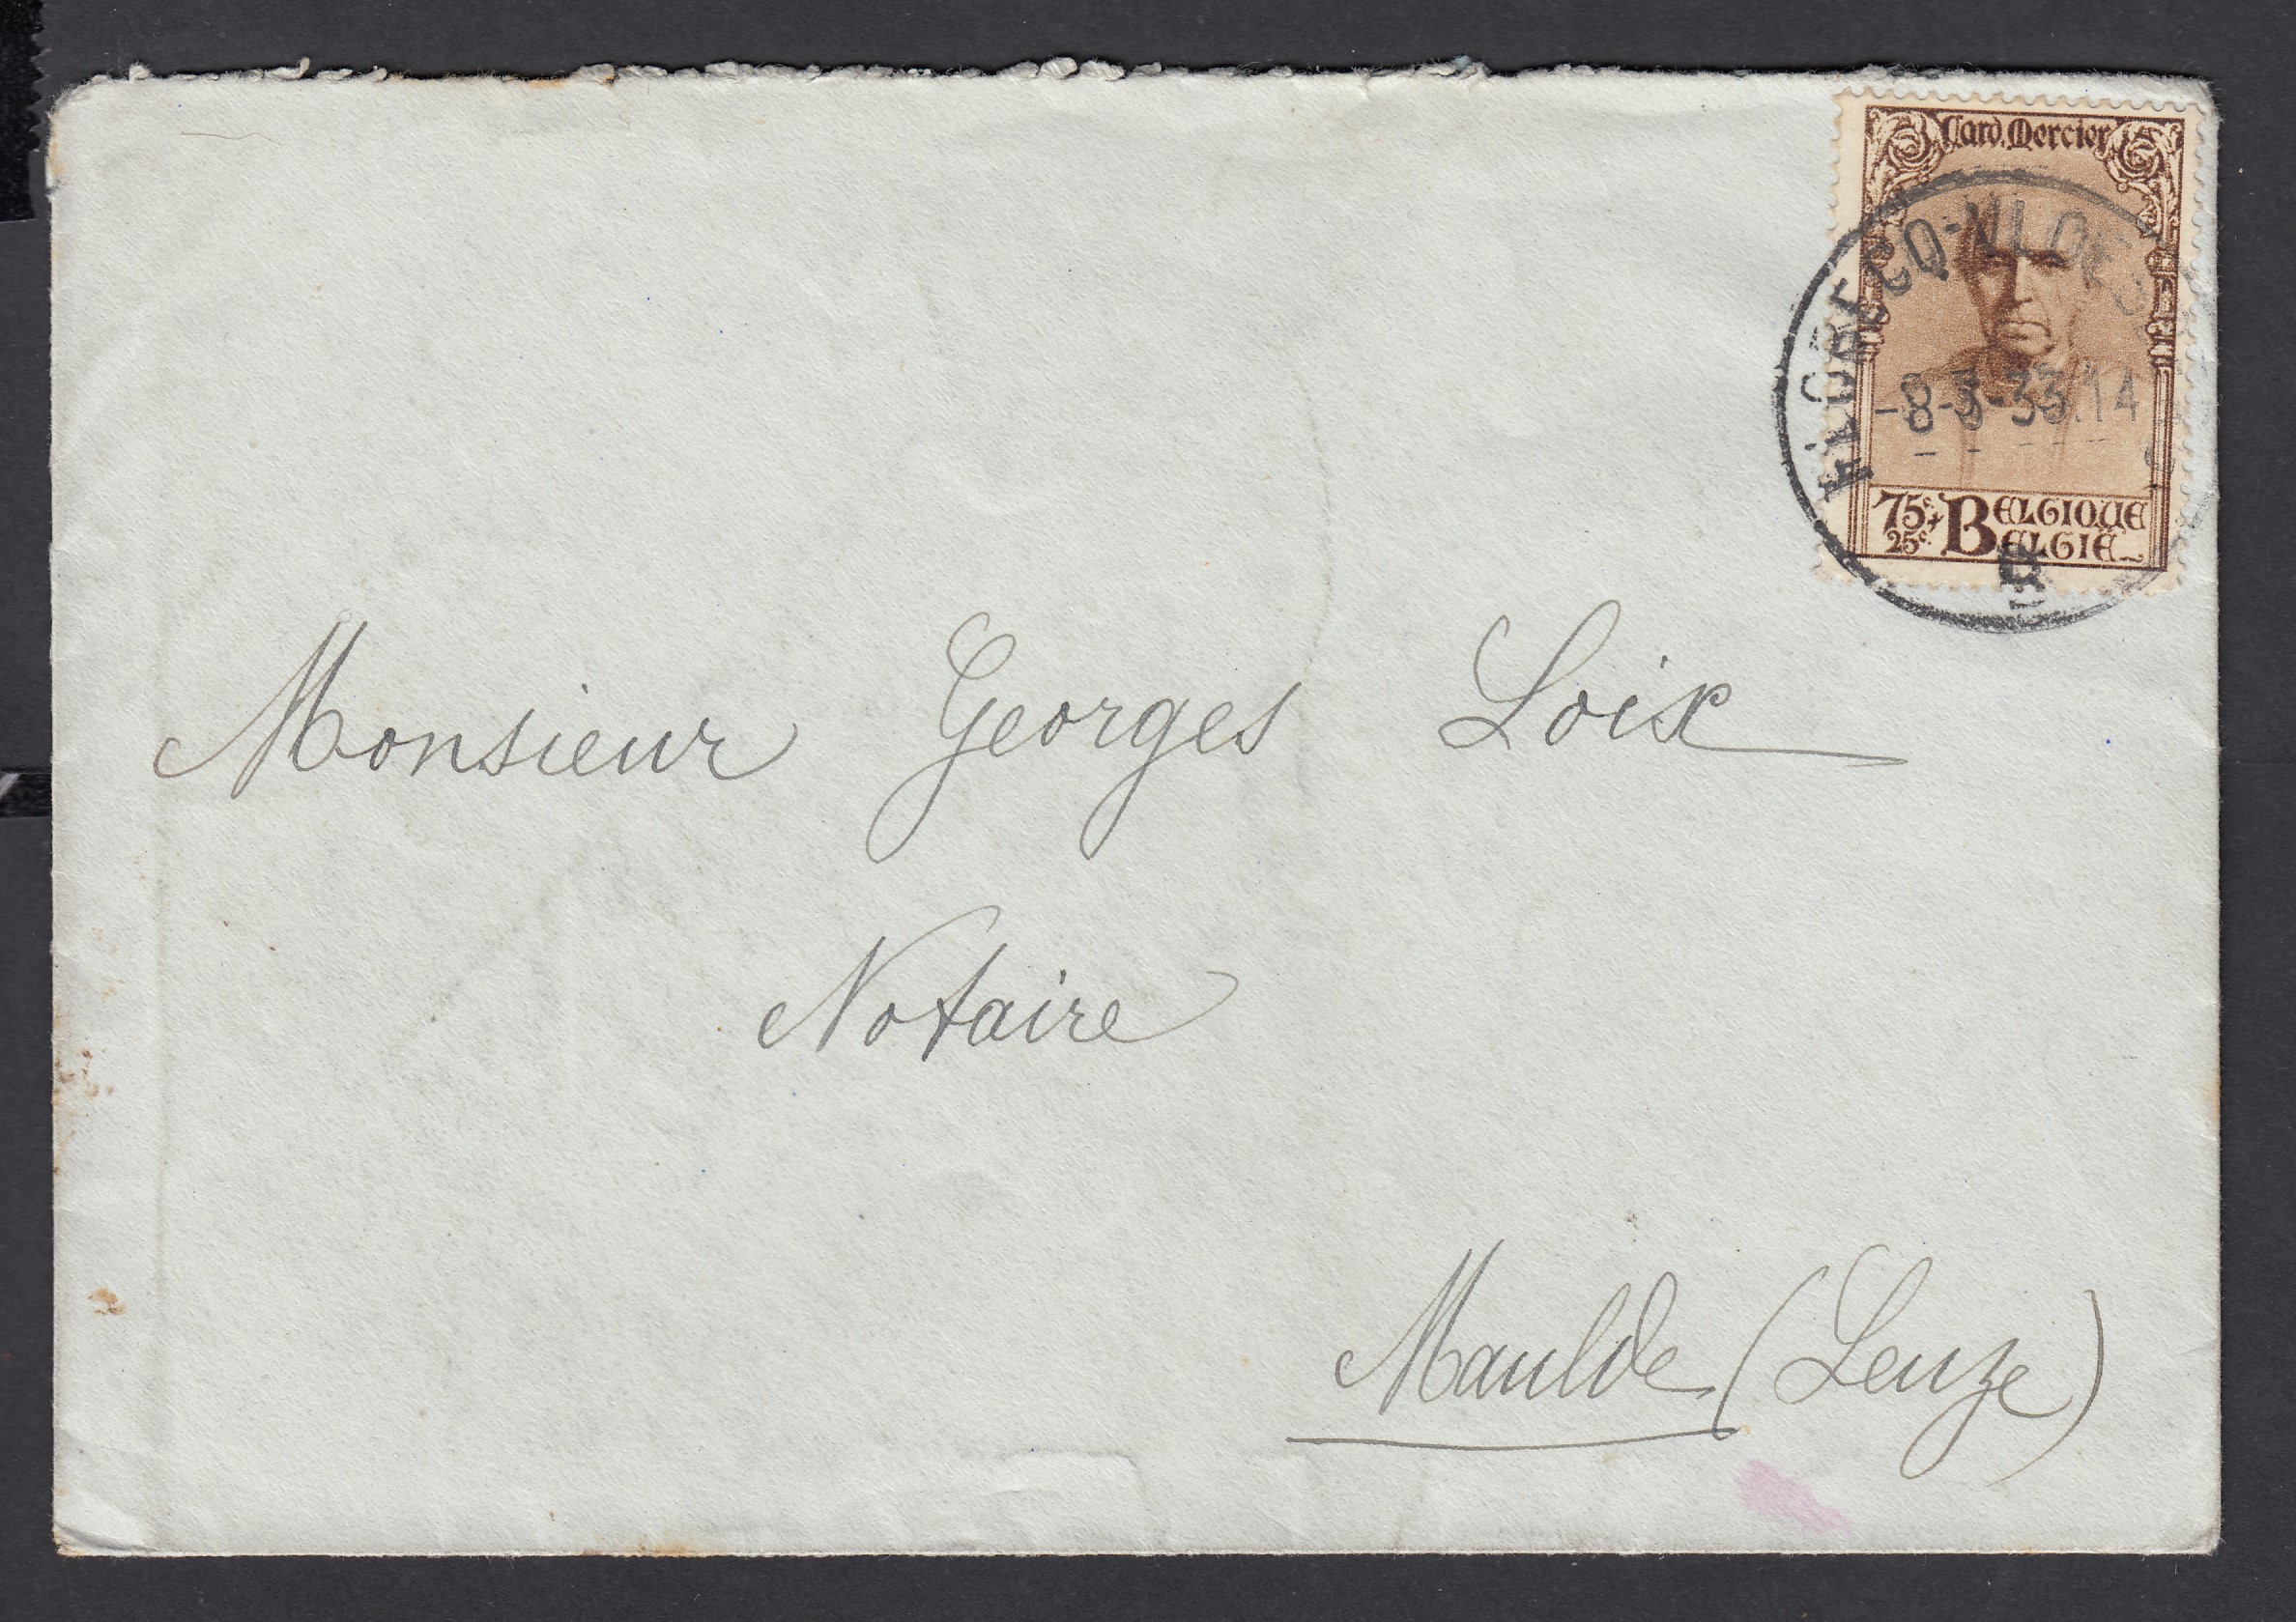 Card. Mercier
-8-3-33.14
75c+
25c.
BELGIQUE
BELGIË
Monsieur Georges Loix
Notaire
Maulde (Leuze)